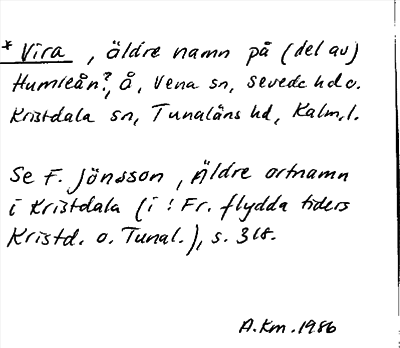 * Vira, äldre namn på (del av)
Humleån?, å, Vena sn, Sevede hd o.
Kristdala sn, Tunaläns hd, Kalm. l.
Se F. Jönsson, Äldre ortnamn
i Kristdala (i: Fr. flydda tiders
Kristd. o. Tunal.), s. 318.
A.Km. 1986